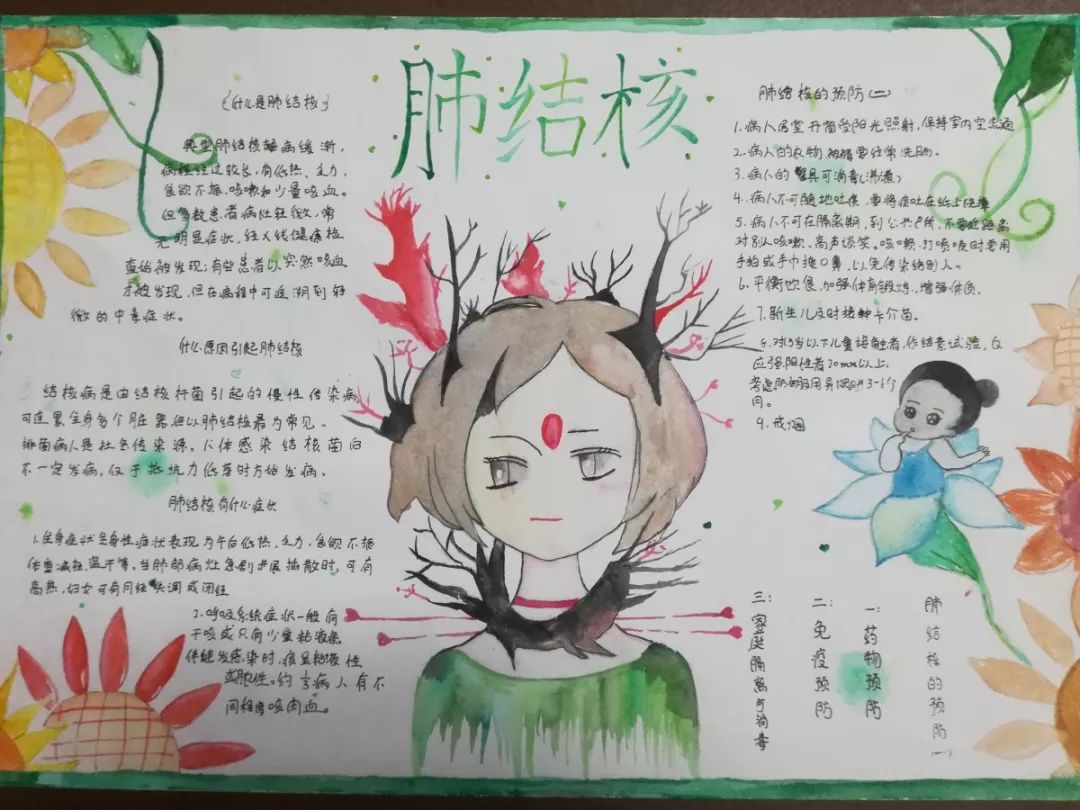 肺结核
《什么是肺结核》
典型肺结核起病缓渐,
病程经过较长,有低热、乏力,
食欲不振、咳嗽和少量咯血。
但多数患者病灶轻微,常
无明显症状,经X线健康检
查始被发现;有些患者以突然咯血
才被发现,但在病程中可追溯到轻
微的中毒症状。
什么原因引起肺结核
结核病是由结核杆菌引起的慢性传染病
可追累全身多个脏器但以肺结核最为常见。
排菌病人是社会传染源。人体感染结核菌白
不一定发病,仅于抵抗力低落时方始发病。
肺结核有什么症状
1.全身症状全身性症状表现为午后低热、乏力、食欲不振
体重减轻、盗汗等。当肺部病灶急剧进展播散时,可有
高热,妇女可有月经失调或闭经
2.呼吸系统症状一般有
干咳或只有少量粘液痰
伴继发感染时,痰呈粘液性
或脓性。约⅓病人有不
同程度咯血。
肺结核的预防(二)
1.病人居室开窗受阳光照射,保持室内空流通
2.病人的衣物被褥要经常洗晒。
3.病人的餐具可消毒(沸煮)
4.病人不可随地吐痰,要将痰吐在纸上烧毁
5.病人不可在隔离期,到公共场所,不要近距离
对别人咳嗽、高声谈笑。咳嗽、打喷嚏时要用
手帕或手巾掩口鼻,以免传染给别人。
6.平衡饮食、加强体育锻炼、增强体质
7.新生儿及时接种卡介苗。
对15岁以下儿童接触者,作结素试验,反
应强阳性者20mm以上,
考虑防
3-6个
月。
9.戒烟
肺结核的预防(一)
一:药物预防
二:免疫预防
三:家庭隔离与消毒